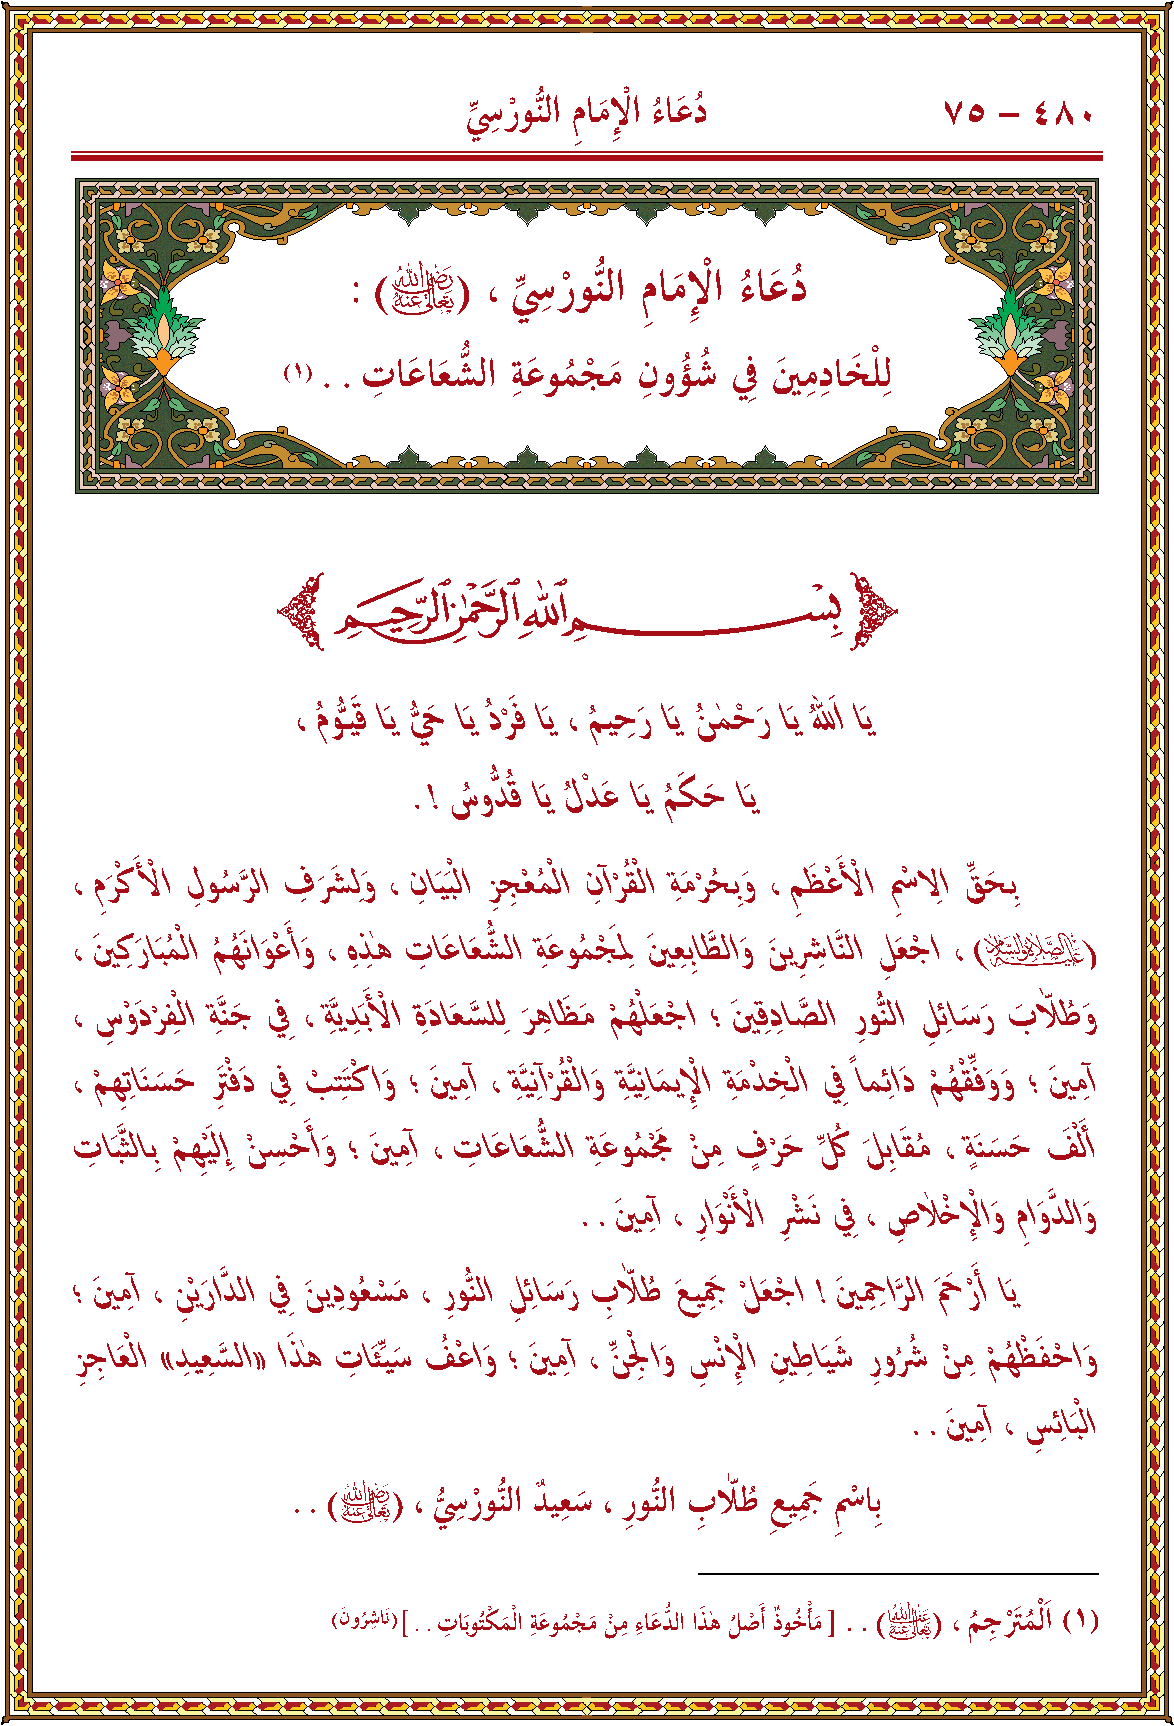 ٤٨٠ – ٧٥ دُعَاءُ الْإِمَامِ النُّورْسِيِّ
دُعَاءُ الْإِمَامِ النُّورْسِيِّ ، (رَضِيَ اللهُ تَعَالَى عَنْهُ) :
لِلْخَادِمِينَ فِي شُؤُونِ مَجْمُوعَةِ الشُّعَاعَاتِ . . (١)
بِسْمِ اللهِ الرَّحْمٰنِ الرَّحِيمِ
يَا اَللهُ يَا رَحْمٰنُ يَا رَحِيمُ ، يَا فَرْدُ يَا حَيُّ يَا قَيُّومُ ،
يَا حَكَمُ يَا عَدْلُ يَا قُدُّوسُ ! .
بِحَقِّ الِاسْمِ الْأَعْظَمِ ، وَبِحُرْمَةِ الْقُرْآنِ الْمُعْجِزِ الْبَيَانِ ، وَلِشَرَفِ الرَّسُولِ الْأَكْرَمِ ،
(عَلَيْهِ الصَّلَاةُ وَالسَّلَامُ) ، اجْعَلِ النَّاشِرِينَ وَالطَّابِعِينَ لِمَجْمُوعَةِ الشُّعَاعَاتِ هٰذِهِ ، وَأَعْوَانَهُمُ الْمُبَارَكِينَ ،
وَطُلَّابَ رَسَائِلِ النُّورِ الصَّادِقِينَ ؛ اجْعَلْهُمْ مَظَاهِرَ لِلسَّعَادَةِ الْأَبَدِيَّةِ ، فِي جَنَّةِ الْفِرْدَوْسِ ،
آمِينَ ؛ وَوَفِّقْهُمْ دَائِماً فِي الْخِدْمَةِ الْإِيمَانِيَّةِ وَالْقُرْآنِيَّةِ ، آمِينَ ؛ وَاكْتَتِبْ فِي دَفْتَرِ حَسَنَاتِهِمْ ،
أَلْفَ حَسَنَةٍ ، مُقَابِلَ كُلِّ حَرْفٍ مِنْ مَجْمُوعَةِ الشُّعَاعَاتِ ، آمِينَ ؛ وَأَحْسِنْ إِلَيْهِمْ بِالثَّبَاتِ
وَالدَّوَامِ وَالْإِخْلَاصِ ، فِي نَشْرِ الْأَنْوَارِ ، آمِينَ . .
يَا أَرْحَمَ الرَّاحِمِينَ ! اجْعَلْ جَمِيعَ طُلَّابِ رَسَائِلِ النُّورِ ، مَسْعُودِينَ فِي الدَّارَيْنِ ، آمِينَ ؛
وَاحْفَظْهُمْ مِنْ شُرُورِ شَيَاطِينِ الْإِنْسِ وَالْجِنِّ ، آمِينَ ؛ وَاعْفُ سَيِّئَاتِ هٰذَا «السَّعِيدِ» الْعَاجِزِ
الْبَائِسِ ، آمِينَ . .
بِاسْمِ جَمِيعِ طُلَّابِ النُّورِ ، سَعِيدٌ النُّورْسِيُّ ، (رَضِيَ اللهُ تَعَالَى عَنْهُ) . .
(١) اَلْمُتَرْجِمُ ، (عَفَا اللهُ تَعَالَى عَنْهُ) . . [ مَأْخُوذٌ أَصْلُ هٰذَا الدُّعَاءِ مِنْ مَجْمُوعَةِ الْمَكْتُوبَاتِ . . ] (نَاشِرُونَ)